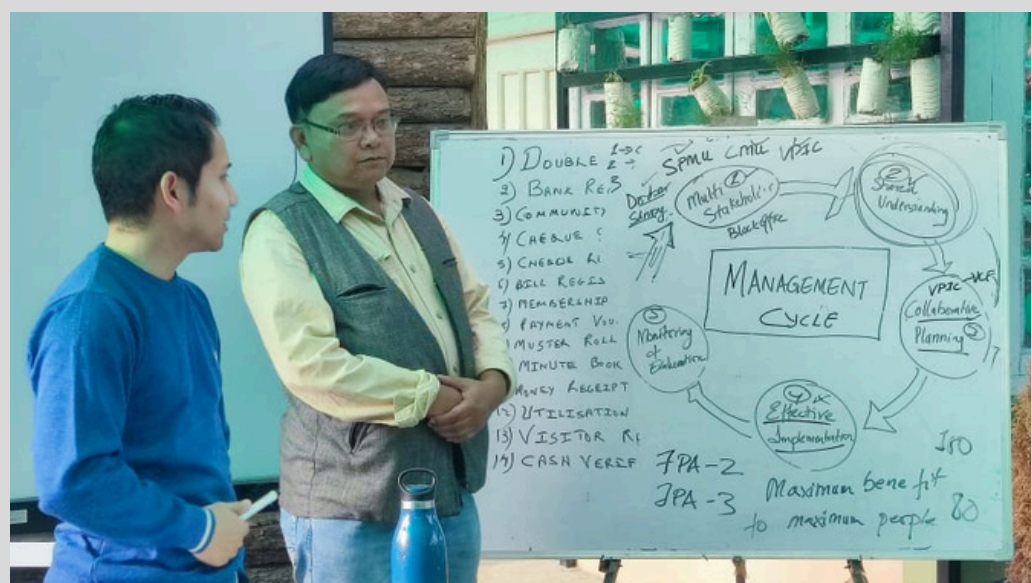 1) DOUBLE
2) BANK REG
3) COMMUNITY
4) CHEQUE
5) CHEQUE RE
6) BILL REGIS
7) MEMBERSHIP
PAYMENT VOU
MUSTER ROLL
MINUTE BOOK
MONEY RECEIPT
12) UTILISATION
13) VISITOR RE
14) CASH VERIF
SPMU CMU VPIC
1
Multi
Stakeholder
Block office
2
Shared
Understanding
MANAGEMENT
CYCLE
VPIC VCF
Collaborative
Planning 3
4
Effective
Implementation
5
Monitoring
&
Evaluation
JPA-2
JPA-3
Maximum benefit
to maximum people
150
80